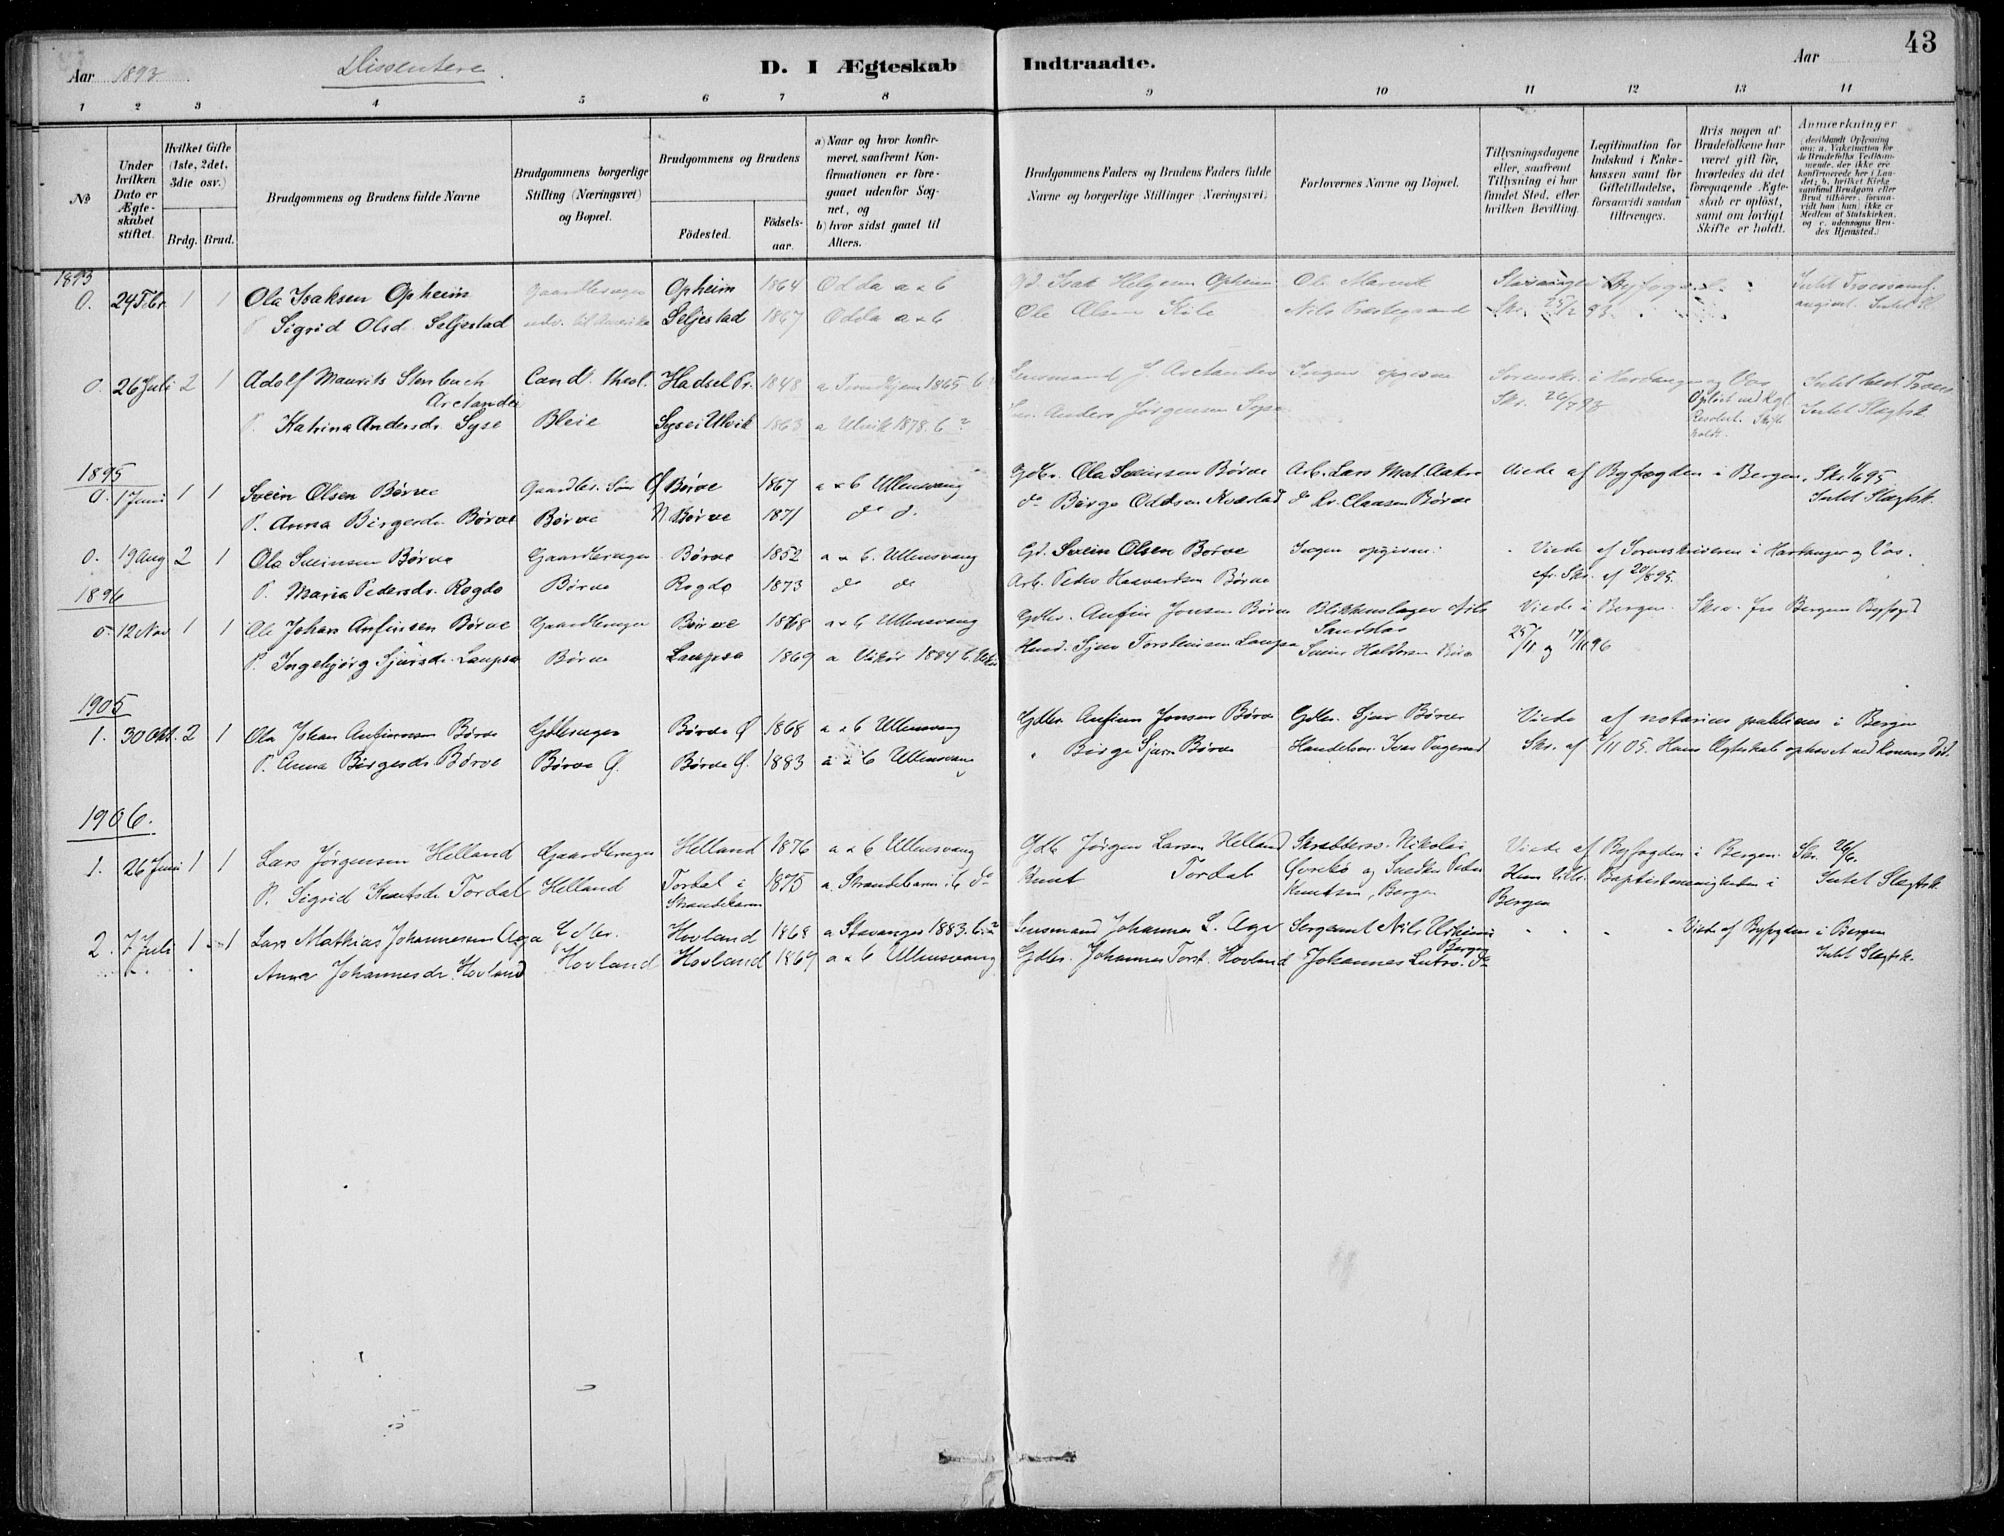 Aar 1893
Dissentere
D. I Ægteskab Indtraadte.
Aar
43
1 2 3 4 5 6 7 8 9 10 11 12 13 14
No
Under hvilken Dato er Ægteskabet stiftet.
Hvilket Gifte (1ste, 2det, 3die osv.)
Brdg. Brud.
Brudgommens og Brudens fulde Navne
Brudgommens borgerlige Stilling (Næringsvei) og Bopæl.
Brudgommens og Brudens
Födested. Födselsaar.
a) Naar og hvor konfirmeret, saafremt Konfirmationen er foregaaet udenfor Sognet, og
b) hvor sidst gaaet til Alters.
Brudgommens Faders og Brudens Faders fulde Navne og borgerlige Stillinger (Næringsvei)
Forlovernes Navne og Bopæl.
Tillysningsdagene eller, saafremt Tillysning ei har fundet Sted, efter hvilken Bevilling.
Legitimation for Indskud i Enkekassen samt for Giftetilladelse, forsaavidt saadan tiltrænges.
Hvis nogen af Brudefolkene har været gift för, hvorledes da det foregaaende Ægteskab er oplöst, samt om lovligt Skifte er holdt.
Anmærkninger (deriblandt Oplysning om: a. Vakcination for de Brudefolks Vedkommende, der ikke ere konfirmerede her i Landet; b. hvilket Kirkesamfund Brudgom eller Brud tilhörer, forsaavidt han (hun) ikke er Medlem af Statskirken, og c. udensogns Brudes Hjemsted.)
1893
0. 24 Fbr 1 1 Ola Isaksen Opheim Gaardbruger Opheim 1864 Odda a & b Gd. Isak Helgesen Opheim Ole
Sigrid Olsd. Seljestad udv. til Amerika Seljestad 1867 Odda a & b Ole Olsen Nils Prestegaard Skr. 25/2 93
0. 26 Juli 2 1 Adolf Maurits Arctander Cand. theol. Hadsel Pr. 1848 a Trondhjem 1865 b Lensmand Arctander Ingen opgivne Sorenskr. i Hardanger og Vos
P. Katrina Andersdr. Syse Bleie Syse i Ulvik 1863 a Ulvik 1878. b ? Anders Jørgensen Syse Skr. 26/7 93 Opløst ved Kgl. Resolut. Skifte holdt. Intet Slægtsk.
1895
0. 1 Juni 1 1 Svein Olsen Børve Gaardbr. Søn Ø Børve 1867 a & b Ullensvang Gdbr. Ola Sveinsen Børve Arb. Lars Mat. Aakre Viede af Byfogden i Bergen. Skr. 1/6 95
P. Anna Birgesdr. Børve Børve N. Børve 1871 do do. do Børge Oddsen Kvæstad do Claasen Børve Intet Slægtsk.
0. 19 Aug 2 1 Ola Sveinsen Børve Gaardbruger Børve 1852 a & b. Ullensvang Gd. Svein Olsen Børve Ingen opgivne. Viede af Sorenskriveren i Hardanger og Vos.
P. Maria Pedersdr. Rogde Børve Rogde 1873 do do Arb. Peder Haavardsen Børve Skr. af 20/8 95.
1896
0. 12 Nov 1 1 Ole Johan Anfinsen Børve Gaardbruger Børve 1868 a & b Ullensvang Gdbr. Anfin Jonsen Børve Blikkenslager Nils Sandstø Viede i Bergen. Skr. fra Bergens Byfogd
P. Ingebjørg Sjursdr. Laupsa Børve Laupsa 1869 a Vikør 1884 b. Sjur Torsteinsen Laupsa Svein Haldorsen Børve 25/11 og 17/11 96
1905
1. 30 Okt. 2 1 Ola Johan Anfinnsen Børve Gdbruger Børve Ø 1868 a & b Ullensvang Gdbr. Anfinn Jonsen Børve Gdbr. Sjur Børve Viede af notarius publicus i Bergen
P. Anna Børgesdr. Børve Børve Ø. Børve Ø. 1883 a & b Ullensvang " Børge Sjurs. Børve Handelsm. Ivar Skr. af 1/11 05. Hans Ægteskab ophævet ved konens Død.
1906.
1. 26 Juni 1 1 Lars Jørgensen Helland Gaardbruger Helland 1876 a & b Ullensvang Gdb. Jørgen Larsen Helland Skrædderm. Nikolai Viede af Byfogden i Bergen. Skr. 26/6.
P. Sigrid Knutsdr. Tordal Helland Tordal i Strandebarm 1875 a. Strandebarm b do Knut Tordal og Snedker Peder Knutsen, Bergen Hun tilh. Baptistmenigheden i Bergen Intet Slægtsk.
2. 7 Juli 1 1 Lars Mathias Johannesen Aga Gdbr. Hovland 1868 a Stavanger 1883. b. ? Lensmand Johannes L. Aga Sergeant Nils Utheim Bergen Viede af Byfogden i Bergen
Anna Johannesdr. Hovland Hovland Hovland 1869 a & b Ullensvang Gdbr. Johannes Torst. Hovland Johannes Lutro. do Intet Slægtsk.